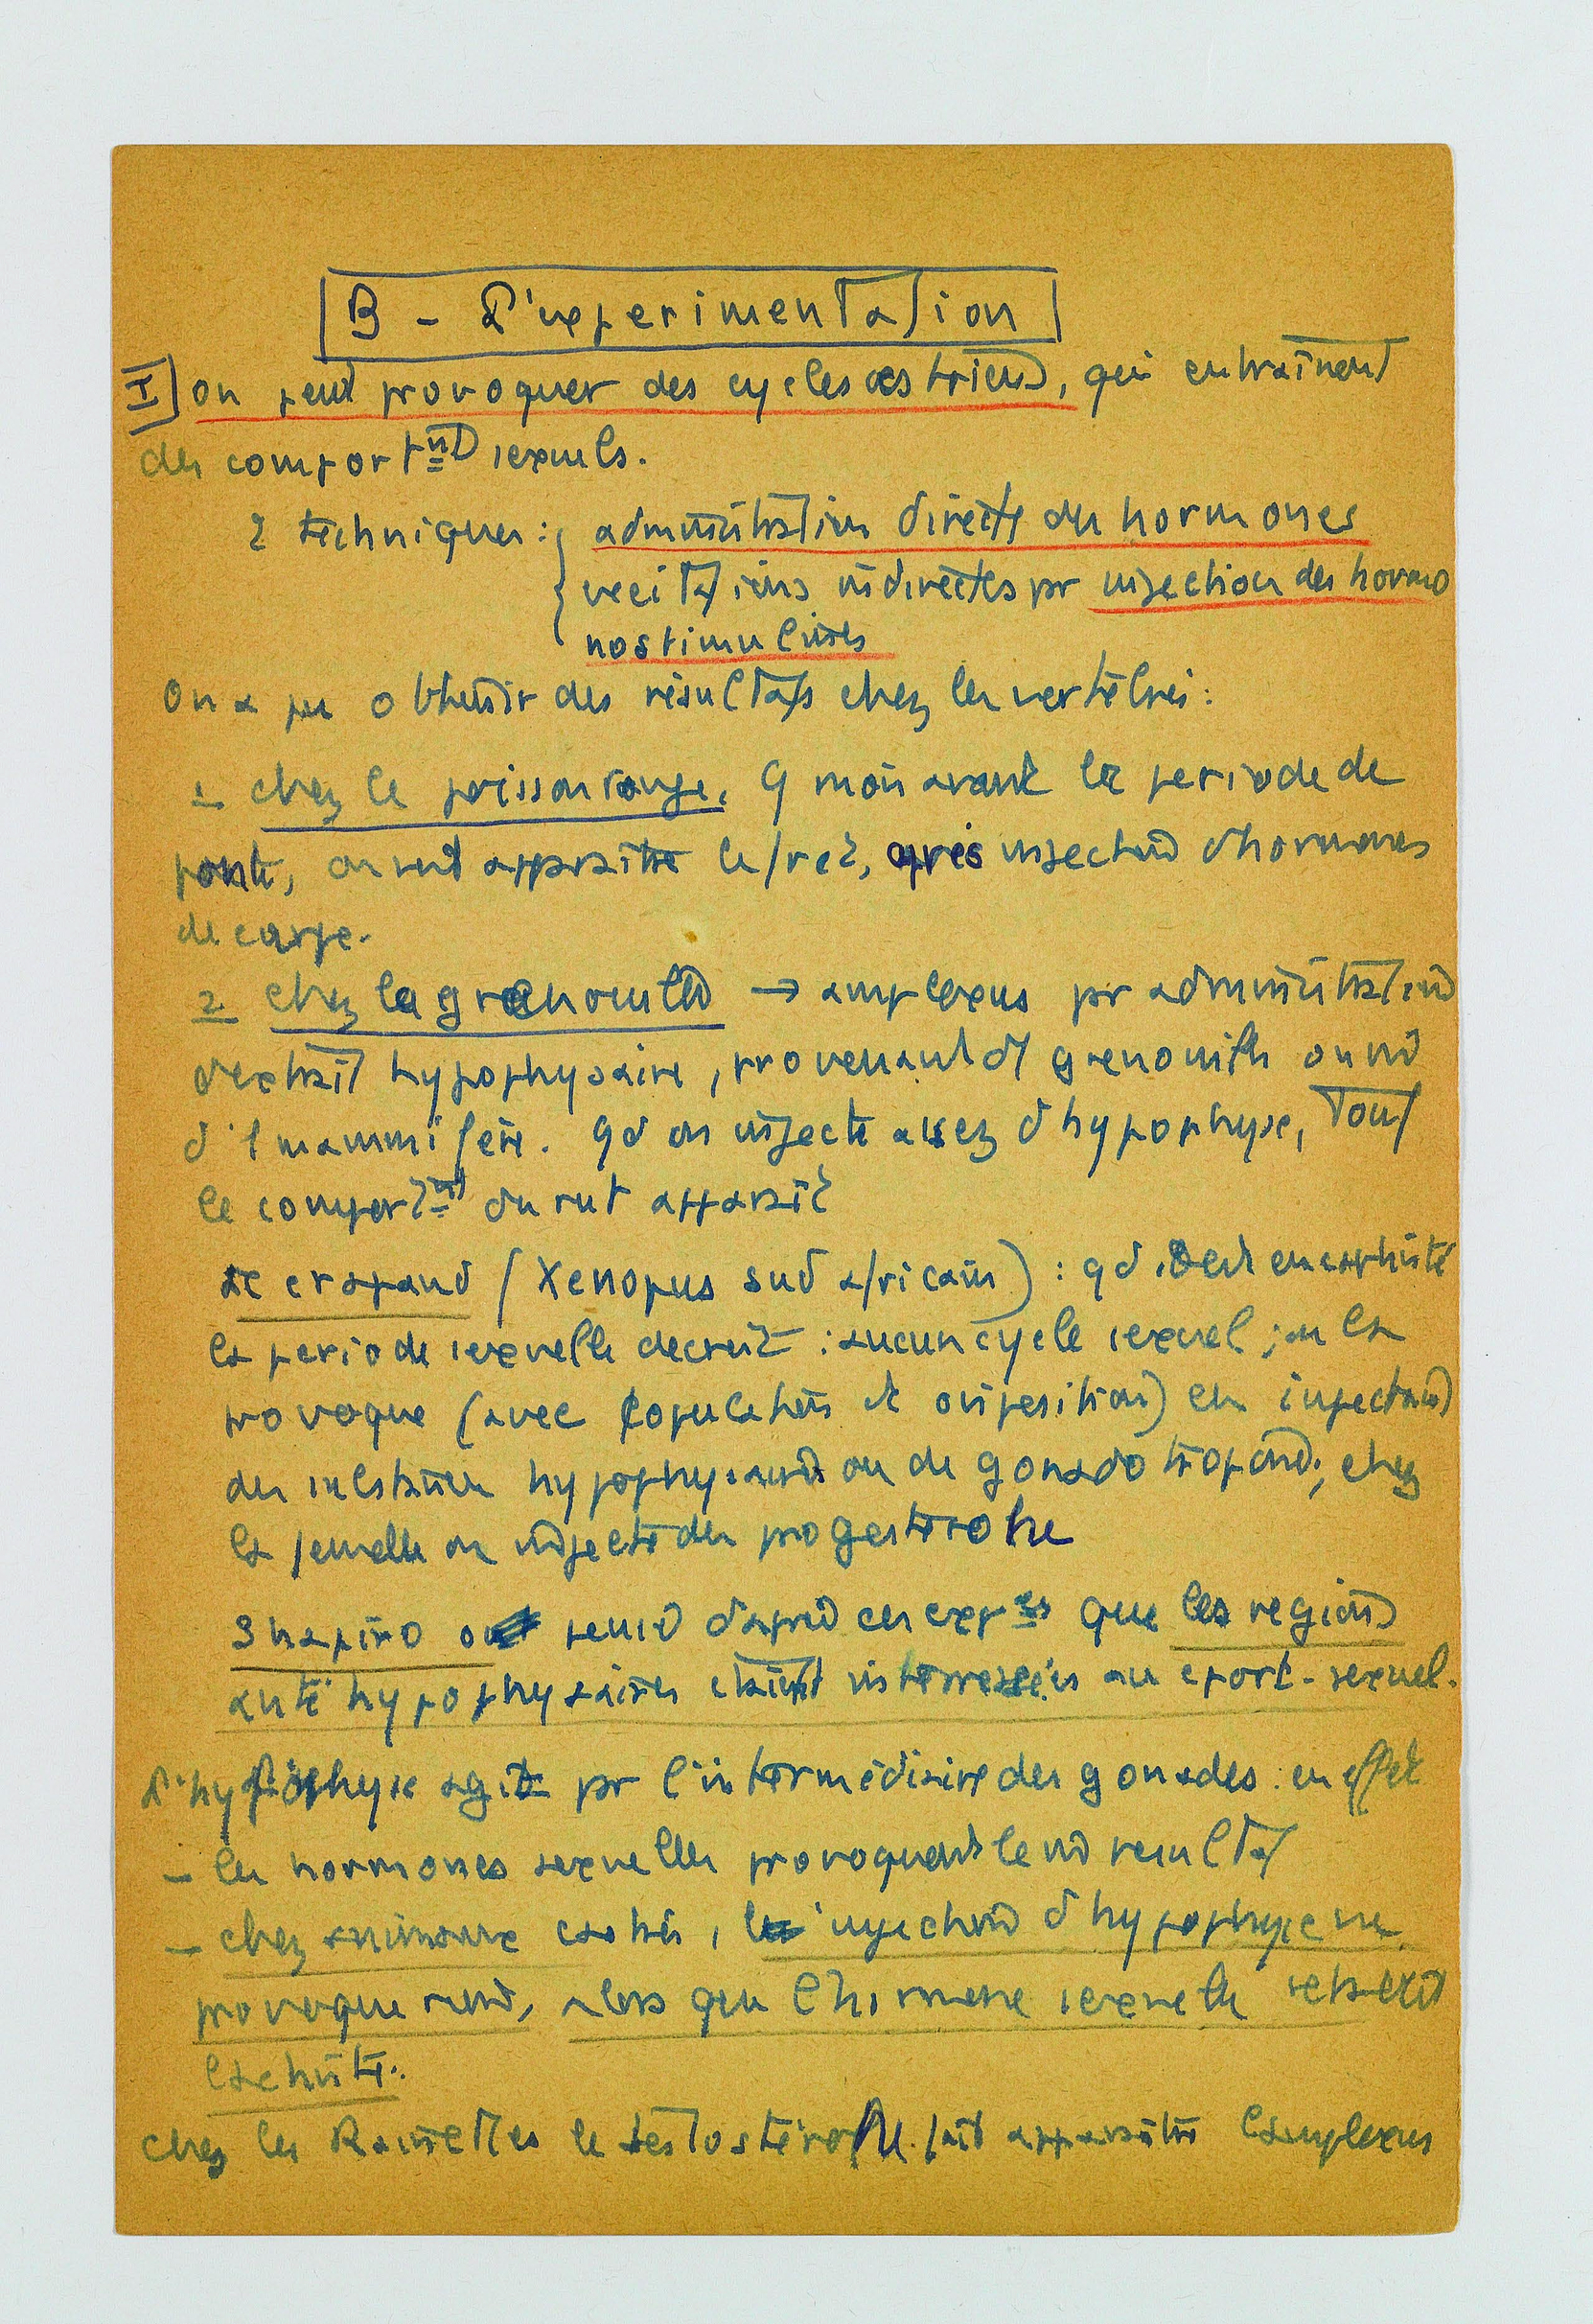 B - L'experimentation
I] on peut provoquer des cycles œstriens, qui entraînent
des comportnts sexuels.
2 techniques : { administration directe des hormones
excitations indirectes pr injection des hormo
nostimulines
On a pu obtenir des résultats chez les vertébrés :
1 chez le poisson rouge, 9 mois avant la periode de
ponte, on voit apparaitre le frai, après injections d'hormones
de carpe.
2 chez la grenouille → amplexus pr administration
d'extrait hypophysaire, provenant d'1 grenouille ou m̂
d'1 mammifère. qd on injecte assez d'hypophyse, tout
le comportnt du rut apparait
le crapaud (Xenopus sud africain) : qd il est en captivité
la periode sexuelle decroit : aucun cycle sexuel ; on la
provoque (avec copulation et oviposition) en injectant
des substances hypophysaires ou de gonadotropine ; chez
la femelle on injecte des progesterone
Shapiro pensait d'après ces expces que les regions
anté hypophysaires étaient interressées au cport. sexuel.
L'hypophyse agit pr l'intermédiaire des gonades : en effet
- les hormones sexuelles provoquent le m̂ resultat
- chez animaux castrés, l'injection d'hypophyse ne
provoque rien, alors que l'hormone sexuelle retablit
l'activité.
chez les Rainettes le testostérone fait apparaitre l'amplexus